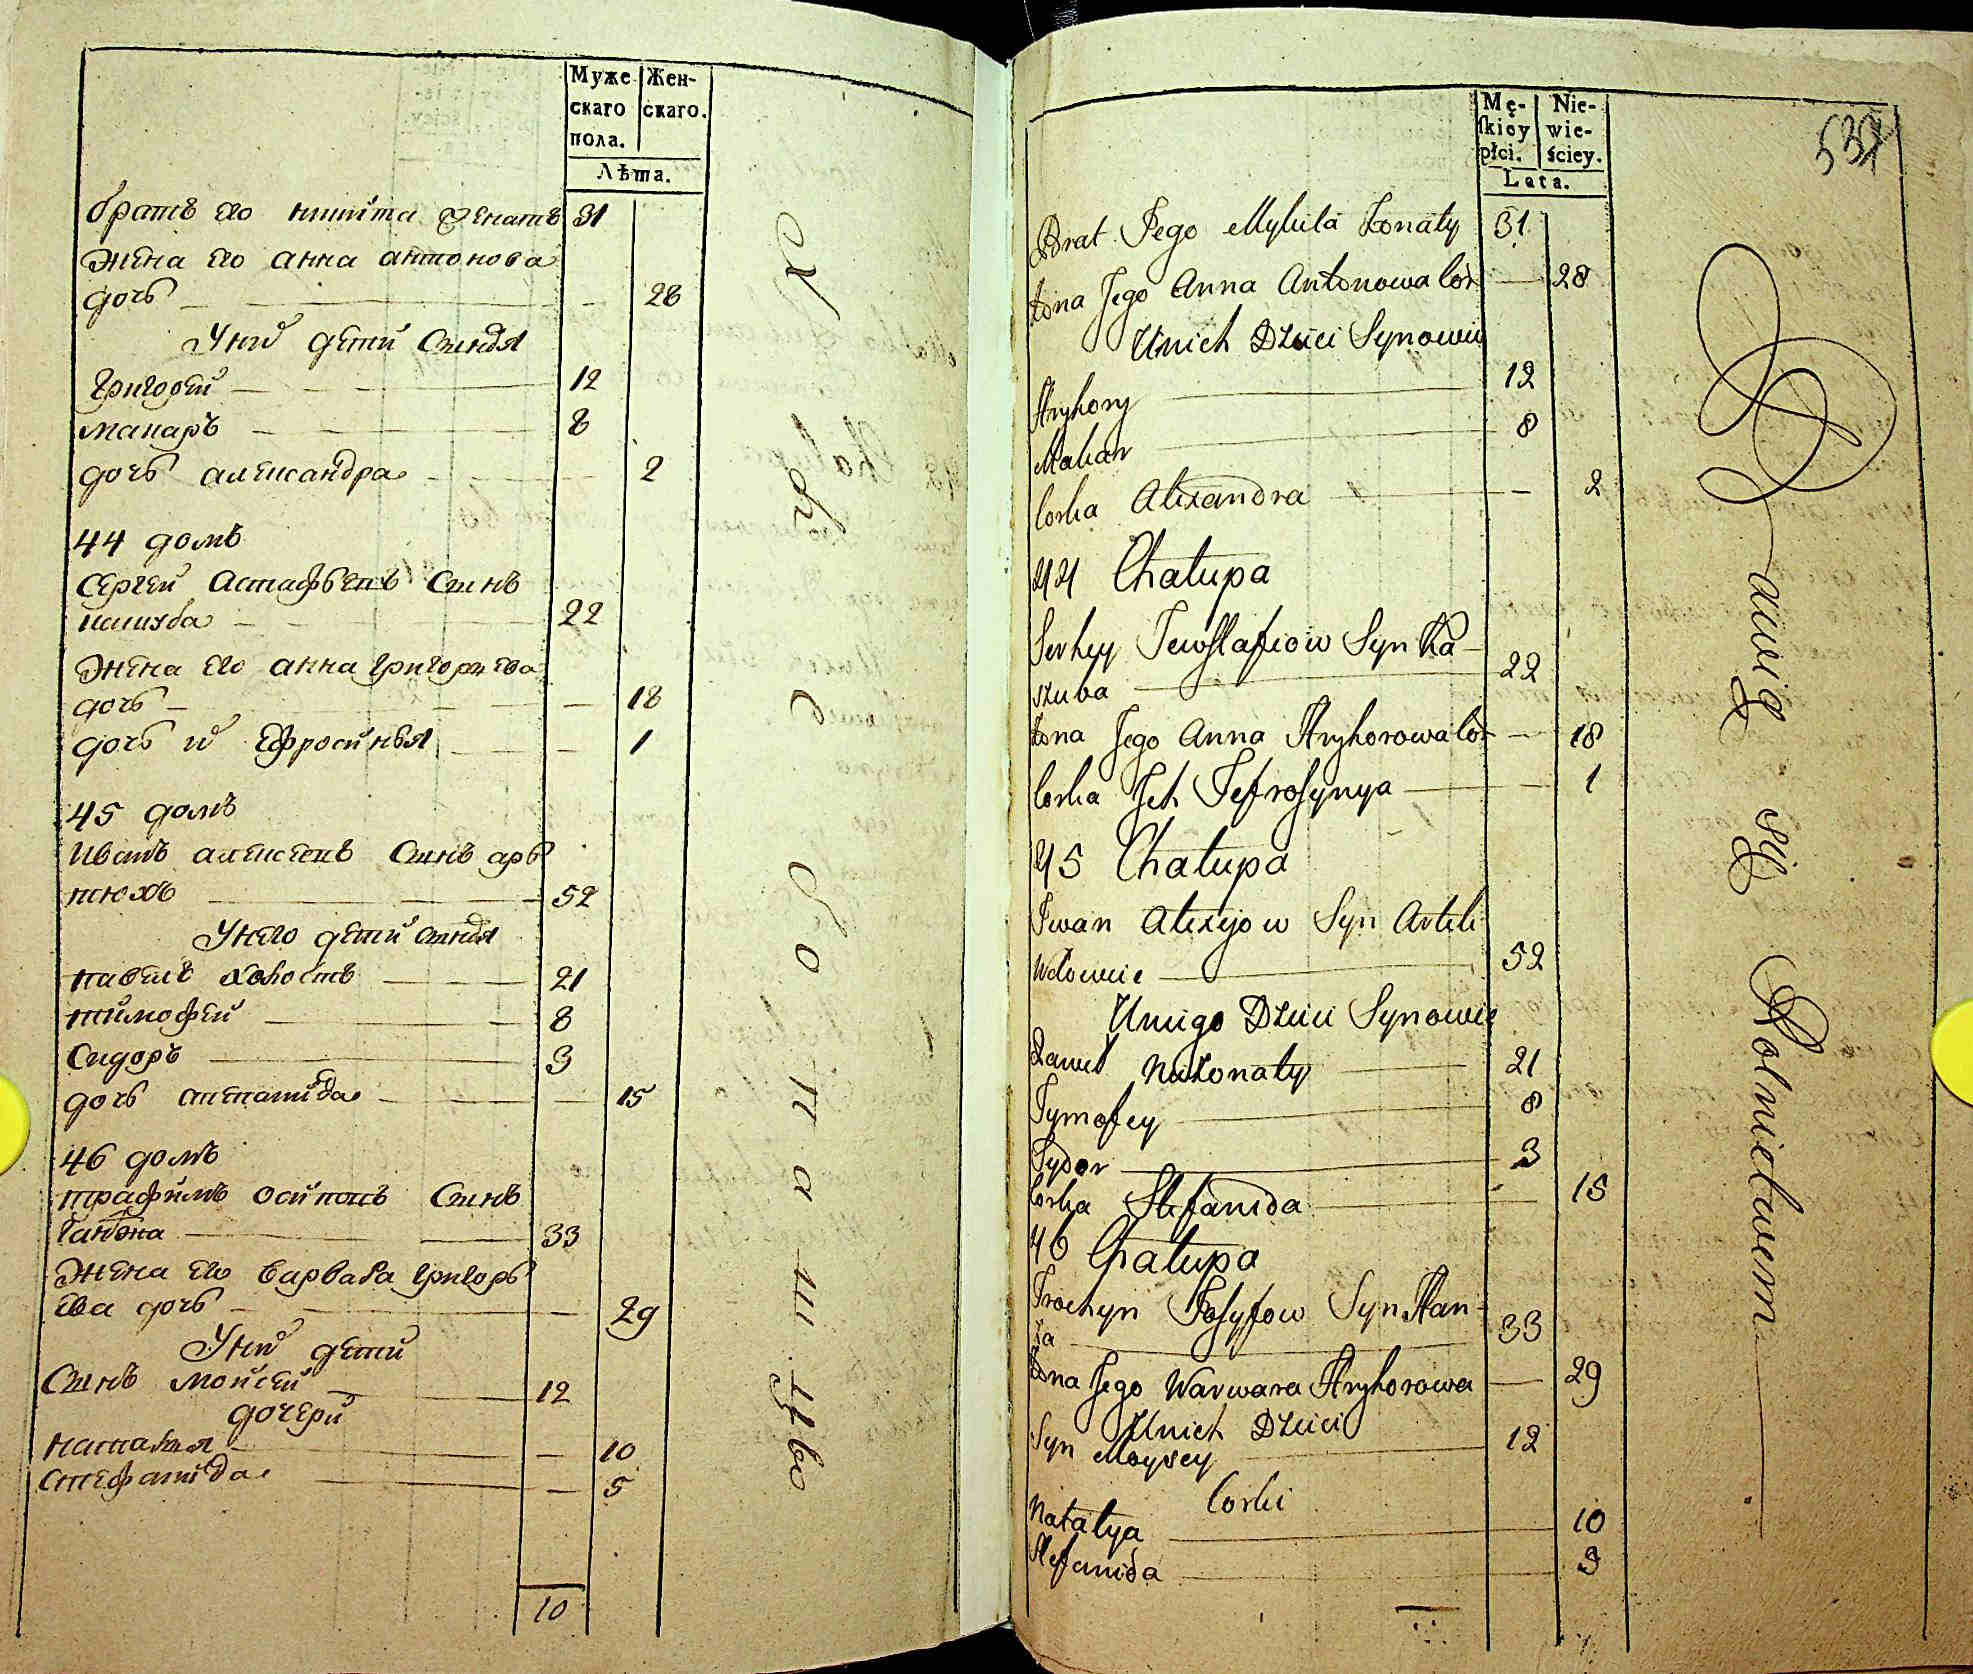 Муже
скаго
пола.
Жен-
скаго.
Лѣта.
братъ его никита женатъ 31
жена его анна антонова
дочь 28
У них дети сыновья
григорей 12
макаръ 8
дочь александра 2
44 домъ
Сергей Астафьевъ Сынъ
кашуба 22
жена его анна григорьева
дочь 18
дочь их Ефросинья 1
45 домъ
Иванъ алексеевъ Сынъ арь
тюхъ 52
У него дети сыновья
павелъ холостъ 21
тимофей 8
Сидоръ 3
дочь степанида 15
46 домъ
трафимъ осиповъ Сынъ
33
жена его варвара григорь
ева дочь 29
У них дети
Сынъ мойсей 12
дочери
наталья 10
стефанида 5
10
Хлебопашество
Mę-
ſkiey
płci.
Nie-
wie-
ściey.
Lata.
537
Brat Jego Mykita Żonaty 31
Żona Jego Anna Antonowa Cór 28
Unich Dzieci Synowie
Hryhory 12
Makar 8
Corka Alexandra 2
44 Chałupa
Serhey Jewstafiow Syn Ka-
szuba 22
Żona Jego Anna Hryhorowa Cór 18
Corka Jch Jefrosynya 1
45 Chałupa
Jwan Alexyow Syn
Wdowiec 52
Uniego Dzieci Synowie
Paweł Nieżonaty 21
Tymofey 8
Sydor 3
Corka Stefanida 15
46 Chałupa
Trochym Josyfow Syn Han-
33
Żona Jego Warwara Hryhorowa 29
Unich Dzieci
Syn Moysey 12
Corki
Natalya 10
Stefanida 5
Bawią się Rolnictwem